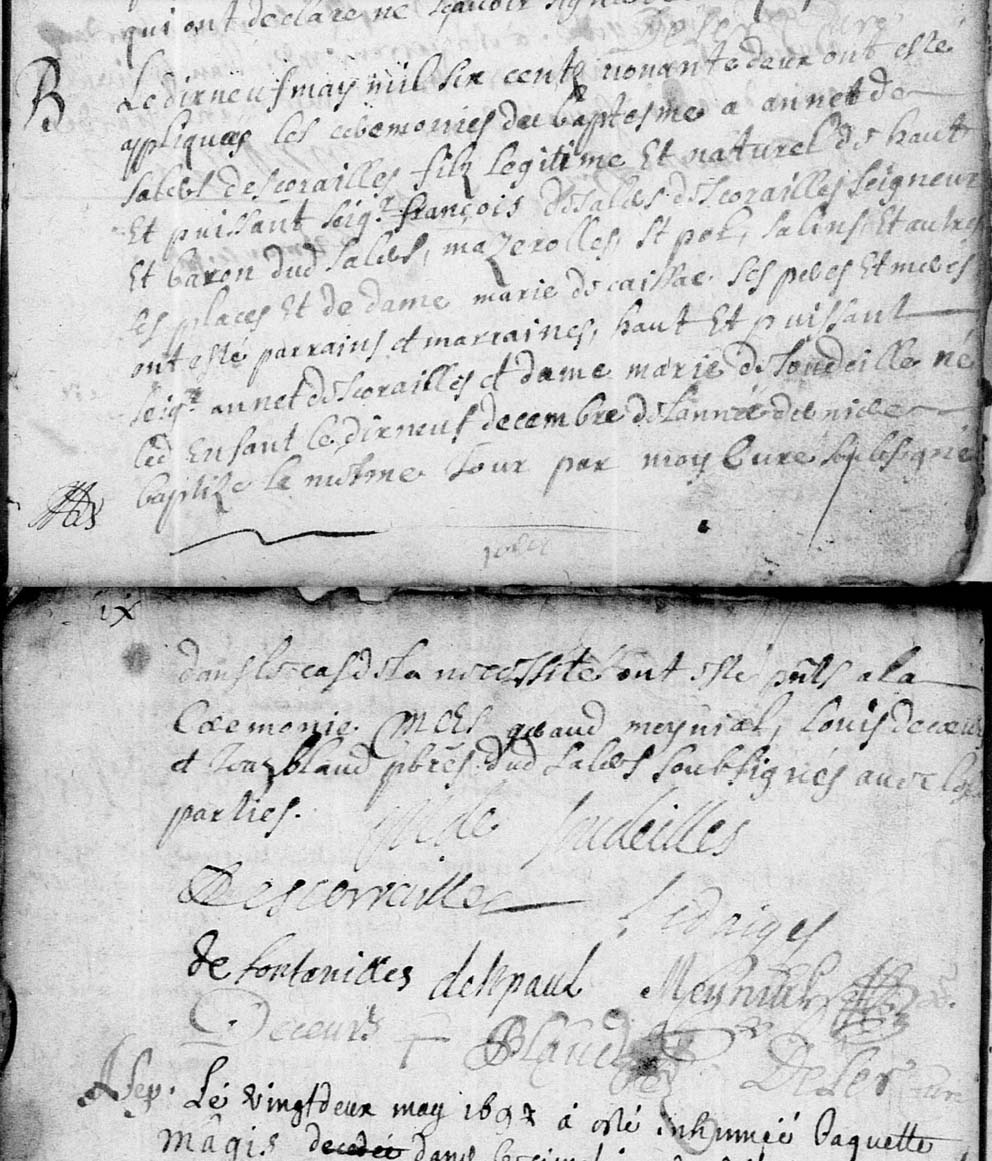 qui ont declare ne scavoir signer
B
Le dixneuf may mil six cents nonante deux ont esté
appliquees les ceremonies du baptesme a annet de
salers descorailles filz legitime Et naturel de haut
Et puissant seigr françois de salers de scorailles seigneur
Et baron dud salers, mazerolles, st pol, salins Et autres
ses places Et de dame marie de caissac ses peres Et meres
ont esté parrains et marraines, haut Et puissant
seigr annet de scorailles et dame marie de soudeille né
led Enfant le dixneuf decembre de l'année derniere
baptize le mesme Jour par moy Cure soubsigné
ix
dans le cas de la necessité ont esté pnts a la
Ceremonie Mes geraud meynial, Louis deceurs
et blaud pbres dud salers soubsignés avec les
parties.
de soudeilles
Descorraille
de fontanilles de st paul Meynial
Deceurs Blaud
Deler cure
Sep. Le vingtdeux may 1692 à esté inhumée Paquette
Mâgis decedeé dans